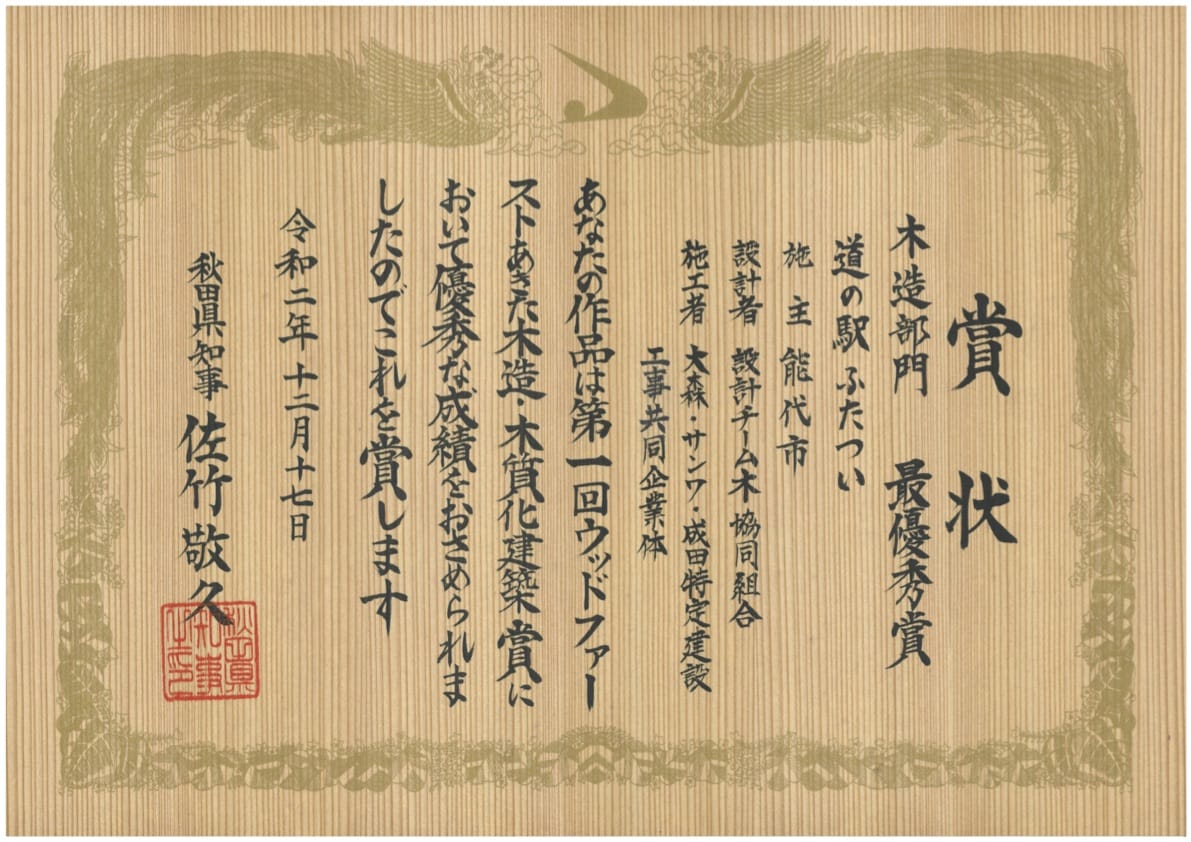 賞状
木造部門 最優秀賞
道の駅ふたつい
施主 能代市
設計者 設計チーム木協同組合
施工者 大森・サンワ・成田特定建設
工事共同企業体
あなたの作品は第一回ウッドファー
ストあきた木造・木質化建築賞に
おいて優秀な成績をおさめられま
したのでこれを賞します
令和二年十二月十七日
秋田県知事 佐竹敬久
秋田縣知事之印